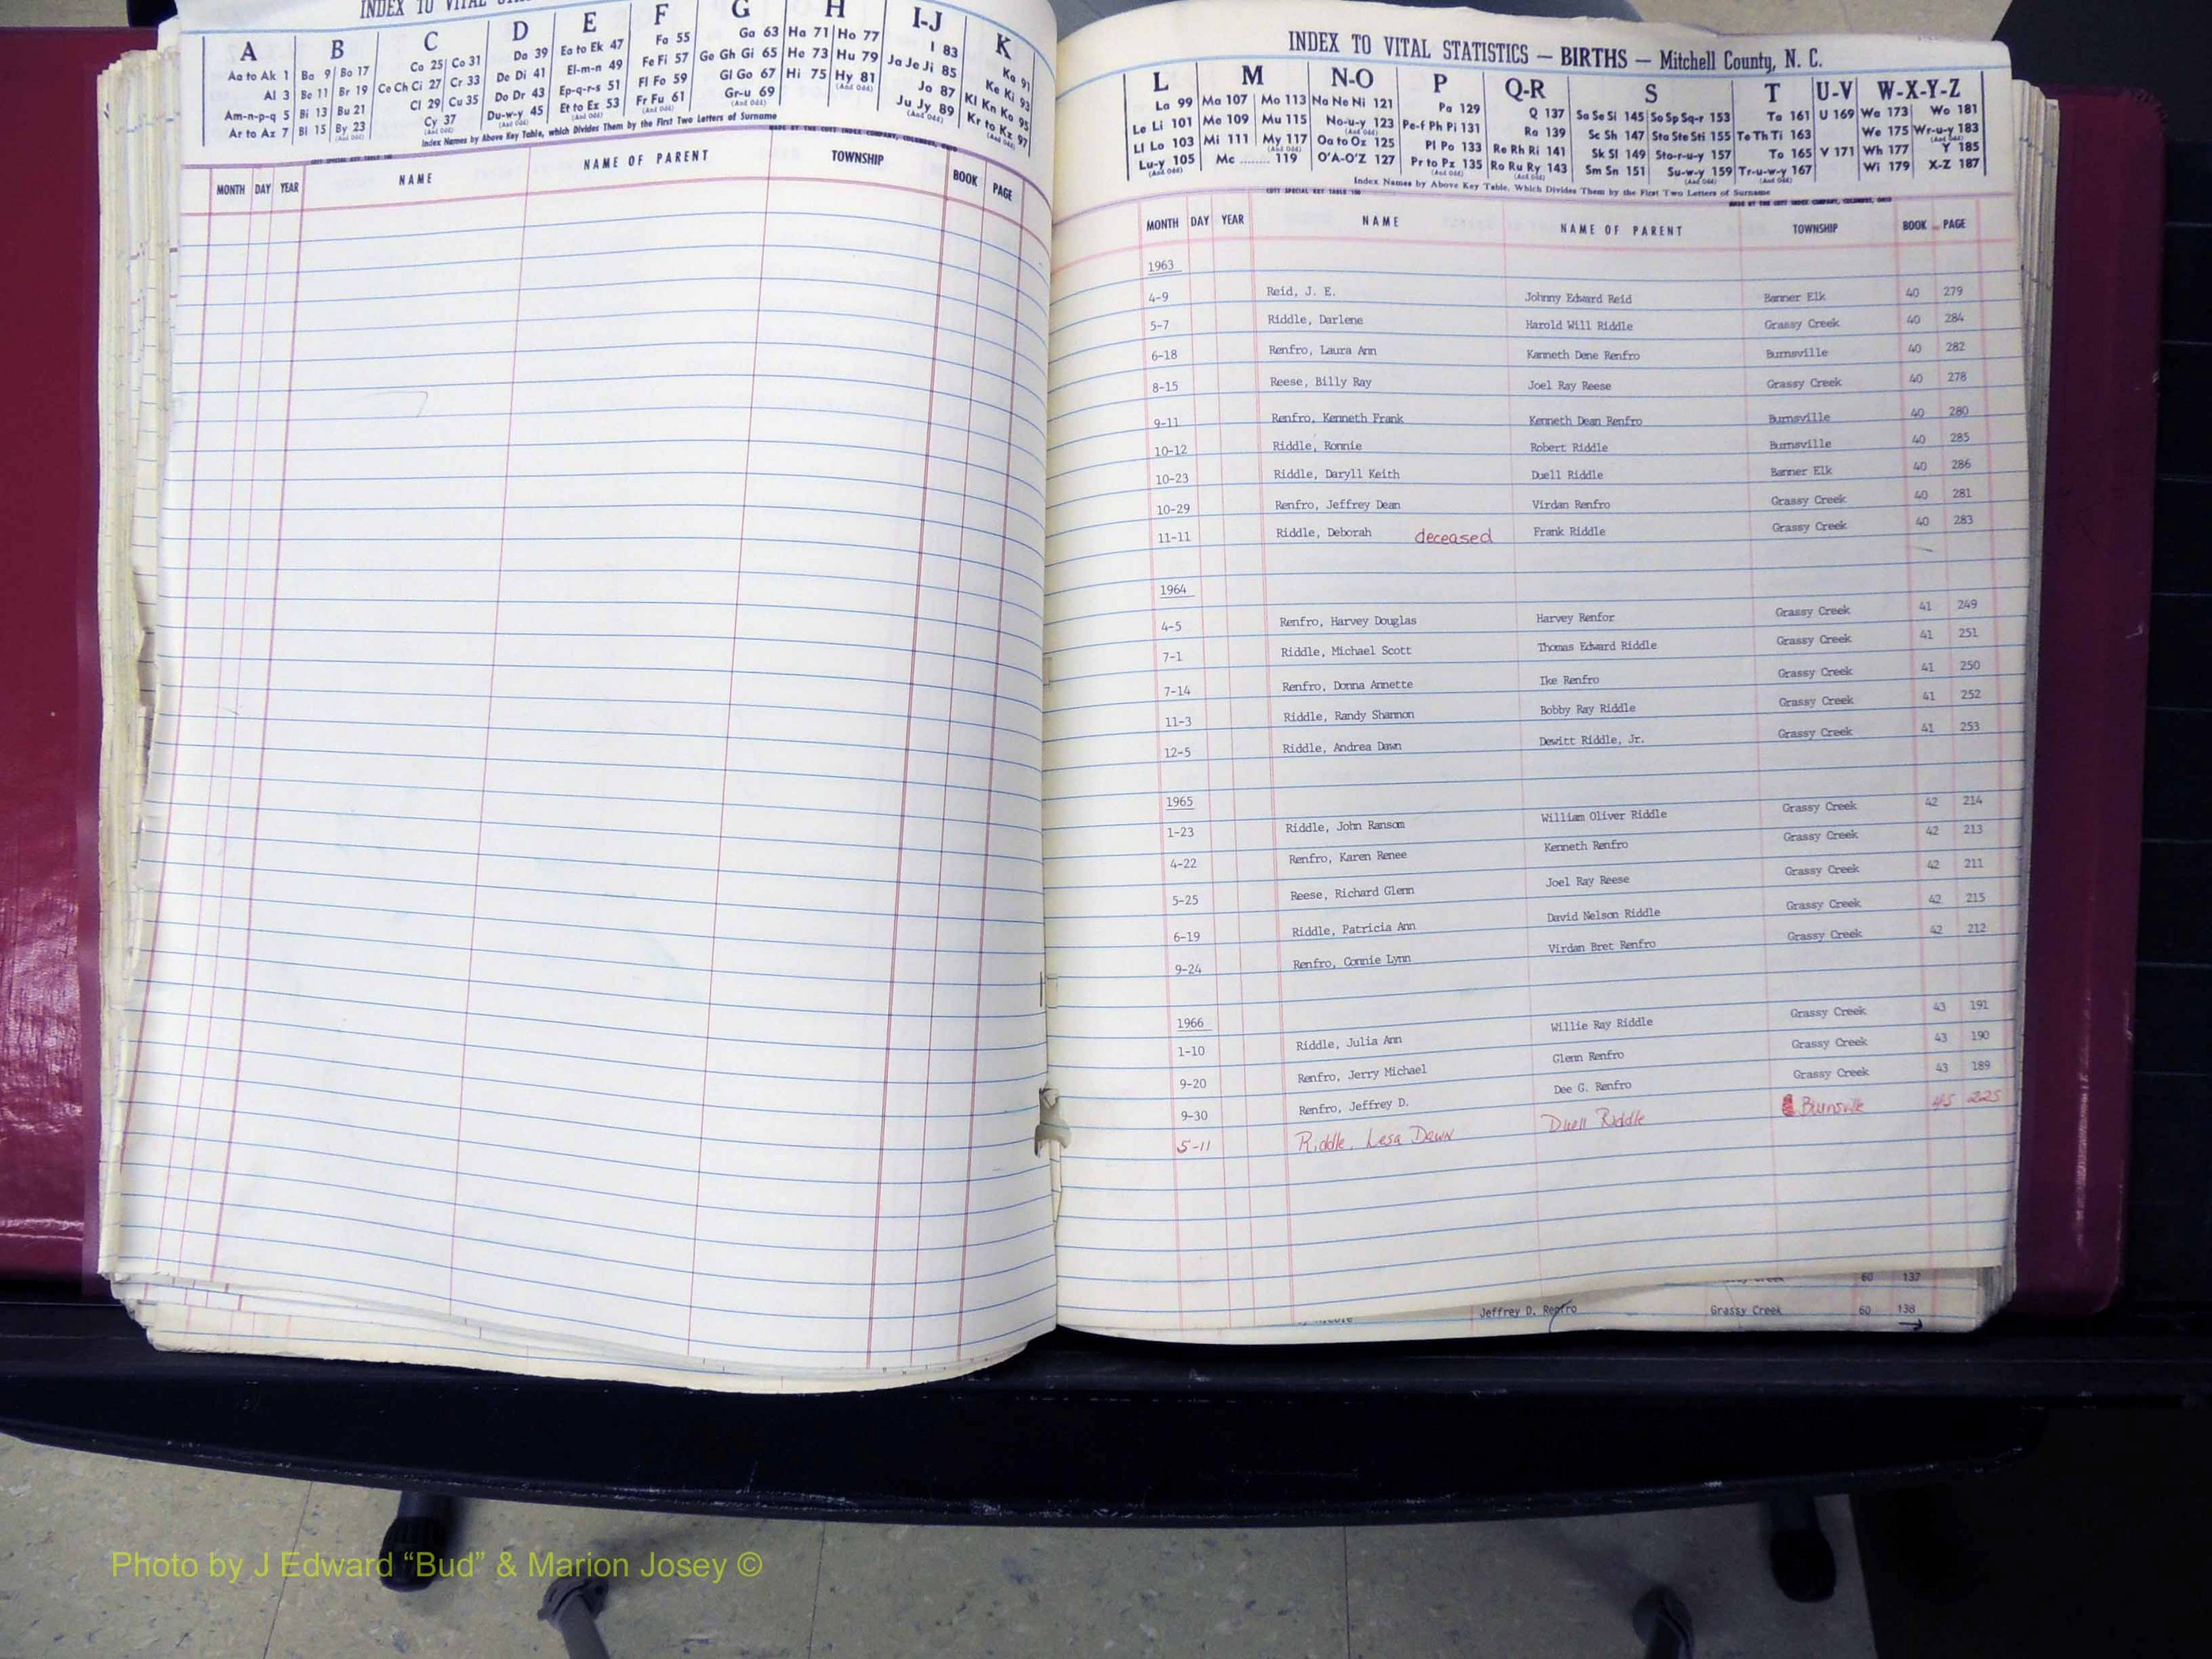 INDEX TO VITAL
A B C D E F G H I-J K
Aa to Ak 1 Ba 9 Bo 17 Ca 25 Co 31 Da 39 Ea to Ek 47 Fa 55 Ga 63 Ha 71 Ho 77 I 83 Ka 91
Al 3 Be 11 Br 19 Ce Ch Ci 27 Cr 33 De Di 41 El-m-n 49 Fe Fi 57 Ge Gh Gi 65 He 73 Hu 79 Ja Je Ji 85 Ke Ki 93
Am-n-p-q 5 Bi 13 Bu 21 Cl 29 Cu 35 Do Dr 43 Ep-q-r-s 51 Fl Fo 59 Gl Go 67 Hi 75 Hy 81 Jo 87 Kl Kn Ko 95
Ar to Az 7 Bl 15 By 23 Cy 37 Du-w-y 45 Et to Ex 53 Fr Fu 61 Gr-u 69 Ju Jy 89 Kr to Kz 97
Index Names by Above Key Table, which Divides Them by the First Two Letters of Surname
MADE BY THE COTT INDEX COMPANY, COLUMBUS, OHIO
MONTH DAY YEAR NAME NAME OF PARENT TOWNSHIP BOOK PAGE
INDEX TO VITAL STATISTICS — BIRTHS — Mitchell County, N. C.
L M N-O P Q-R S T U-V W-X-Y-Z
La 99 Ma 107 Mo 113 Na Ne Ni 121 Pa 129 Q 137 Sa Se Si 145 So Sp Sq-r 153 Ta 161 U 169 Wa 173 Wo 181
Le Li 101 Me 109 Mu 115 No-u-y 123 Pe-f Ph Pi 131 Ra 139 Sc Sh 147 Sta Ste Sti 155 Te Th Ti 163 We 175 Wr-u-y 183
Ll Lo 103 Mi 111 My 117 Oa to Oz 125 Pl Po 133 Re Rh Ri 141 Sk Sl 149 Sto-r-u-y 157 To 165 V 171 Wh 177 Y 185
Lu-y 105 Mc ........ 119 O'A-O'Z 127 Pr to Pz 135 Ro Ru Ry 143 Sm Sn 151 Su-w-y 159 Tr-u-w-y 167 Wi 179 X-Z 187
Index Names by Above Key Table, Which Divides Them by the First Two Letters of Surname
COTT SPECIAL KEY TABLE MADE BY THE COTT INDEX COMPANY, COLUMBUS, OHIO
MONTH DAY YEAR NAME NAME OF PARENT TOWNSHIP BOOK PAGE
1963
4-9 Reid, J. E. Johnny Edward Reid Banner Elk 40 279
5-7 Riddle, Darlene Harold Will Riddle Grassy Creek 40 284
6-18 Renfro, Laura Ann Kanneth Dene Renfro Burnsville 40 282
8-15 Reese, Billy Ray Joel Ray Reese Grassy Creek 40 278
9-11 Renfro, Kenneth Frank Kenneth Dean Renfro Burnsville 40 280
10-12 Riddle, Ronnie Robert Riddle Burnsville 40 285
10-23 Riddle, Daryll Keith Duell Riddle Banner Elk 40 286
10-29 Renfro, Jeffrey Dean Virdan Renfro Grassy Creek 40 281
11-11 Riddle, Deborah deceased Frank Riddle Grassy Creek 40 283
1964
4-5 Renfro, Harvey Douglas Harvey Renfor Grassy Creek 41 249
7-1 Riddle, Michael Scott Thomas Edward Riddle Grassy Creek 41 251
7-14 Renfro, Donna Annette Ike Renfro Grassy Creek 41 250
11-3 Riddle, Randy Shannon Bobby Ray Riddle Grassy Creek 41 252
12-5 Riddle, Andrea Dawn Dewitt Riddle, Jr. Grassy Creek 41 253
1965
1-23 Riddle, John Ransom William Oliver Riddle Grassy Creek 42 214
4-22 Renfro, Karen Renee Kenneth Renfro Grassy Creek 42 213
5-25 Reese, Richard Glenn Joel Ray Reese Grassy Creek 42 211
6-19 Riddle, Patricia Ann David Nelson Riddle Grassy Creek 42 215
9-24 Renfro, Connie Lynn Virdan Bret Renfro Grassy Creek 42 212
1966
1-10 Riddle, Julia Ann Willie Ray Riddle Grassy Creek 43 191
9-20 Renfro, Jerry Michael Glenn Renfro Grassy Creek 43 190
9-30 Renfro, Jeffrey D. Dee G. Renfro Grassy Creek 43 189
5-11 Riddle, Lesa Dawn Duell Riddle Burnsville 45 225
60 137
Jeffrey D. Renfro Grassy Creek 60 138
Photo by J Edward “Bud” & Marion Josey ©